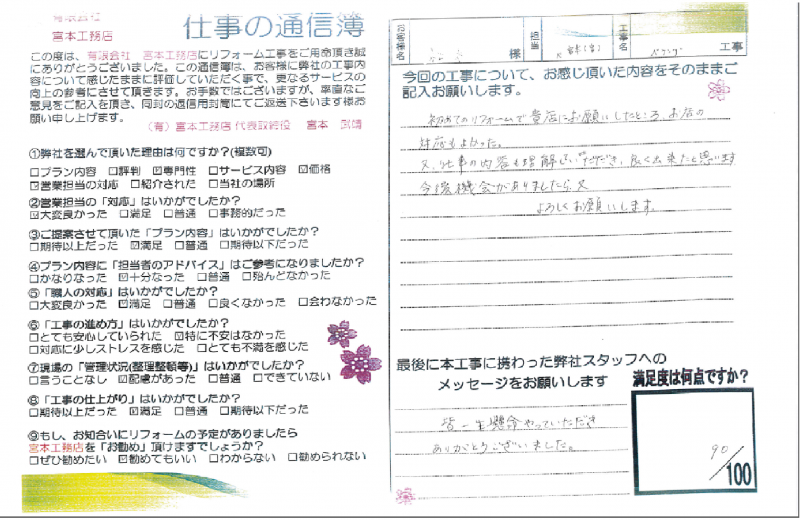 有限会社
宮本工務店
仕事の通信簿
この度は、有限会社 宮本工務店にリフォーム工事をご用命頂き誠
にありがとうございました。この通信簿は、お客様に弊社の工事内
容について感じたままに評価していただく事で、更なるサービスの
向上の参考にさせて頂きます。お手数ではございますが、率直なご
意見をご記入を頂き、同封の返信用封筒にてご返送下さいます様お
願い申し上げます。
(有)宮本工務店 代表取締役 宮本
①弊社を選んで頂いた理由は何ですか?(複数可)
□プラン内容 □評判 ☑専門性 □サービス内容 ☑価格
☑営業担当の対応 □紹介された □当社の場所
②営業担当の「対応」はいかがでしたか?
☑大変良かった □満足 □普通 □事務的だった
③ご提案させて頂いた「プラン内容」はいかがでしたか?
□期待以上だった ☑満足 □普通 □期待以下だった
④プラン内容に「担当者のアドバイス」はご参考になりましたか?
□かなりなった ☑十分なった □普通 □殆んどなかった
⑤「職人の対応」はいかがでしたか?
□大変良かった ☑満足 □普通 □良くなかった □会わなかった
⑥「工事の進め方」はいかがでしたか?
□とても安心していられた ☑特に不安はなかった
□対応に少しストレスを感じた □とても不満を感じた
⑦現場の「管理状況(整理整頓等)」はいかがでしたか?
□言うことなし ☑配慮があった □普通 □できていない
⑧「工事の仕上がり」はいかがでしたか?
□期待以上だった ☑満足 □普通 □期待以下だった
⑨もし、お知合いにリフォームの予定がありましたら
宮本工務店を「お勧め」頂けますでしょうか?
□ぜひ勧めたい ☑勧めてもいい □わからない □勧められない
お客様名 様 担当 工事名 工事
今回の工事について、お感じ頂いた内容をそのままご
記入お願いします。
初めてのリフォームで貴店にお願いしたところ、お店の
対応もよかった。
又、仕事の内容も理解していただき、良く出来たと思います
今後機会がありましたら、又
よろしくお願いします。
最後に本工事に携わった弊社スタッフへの
メッセージをお願いします
皆一生懸命やっていただき
ありがとうございました。
満足度は何点ですか?
90/100